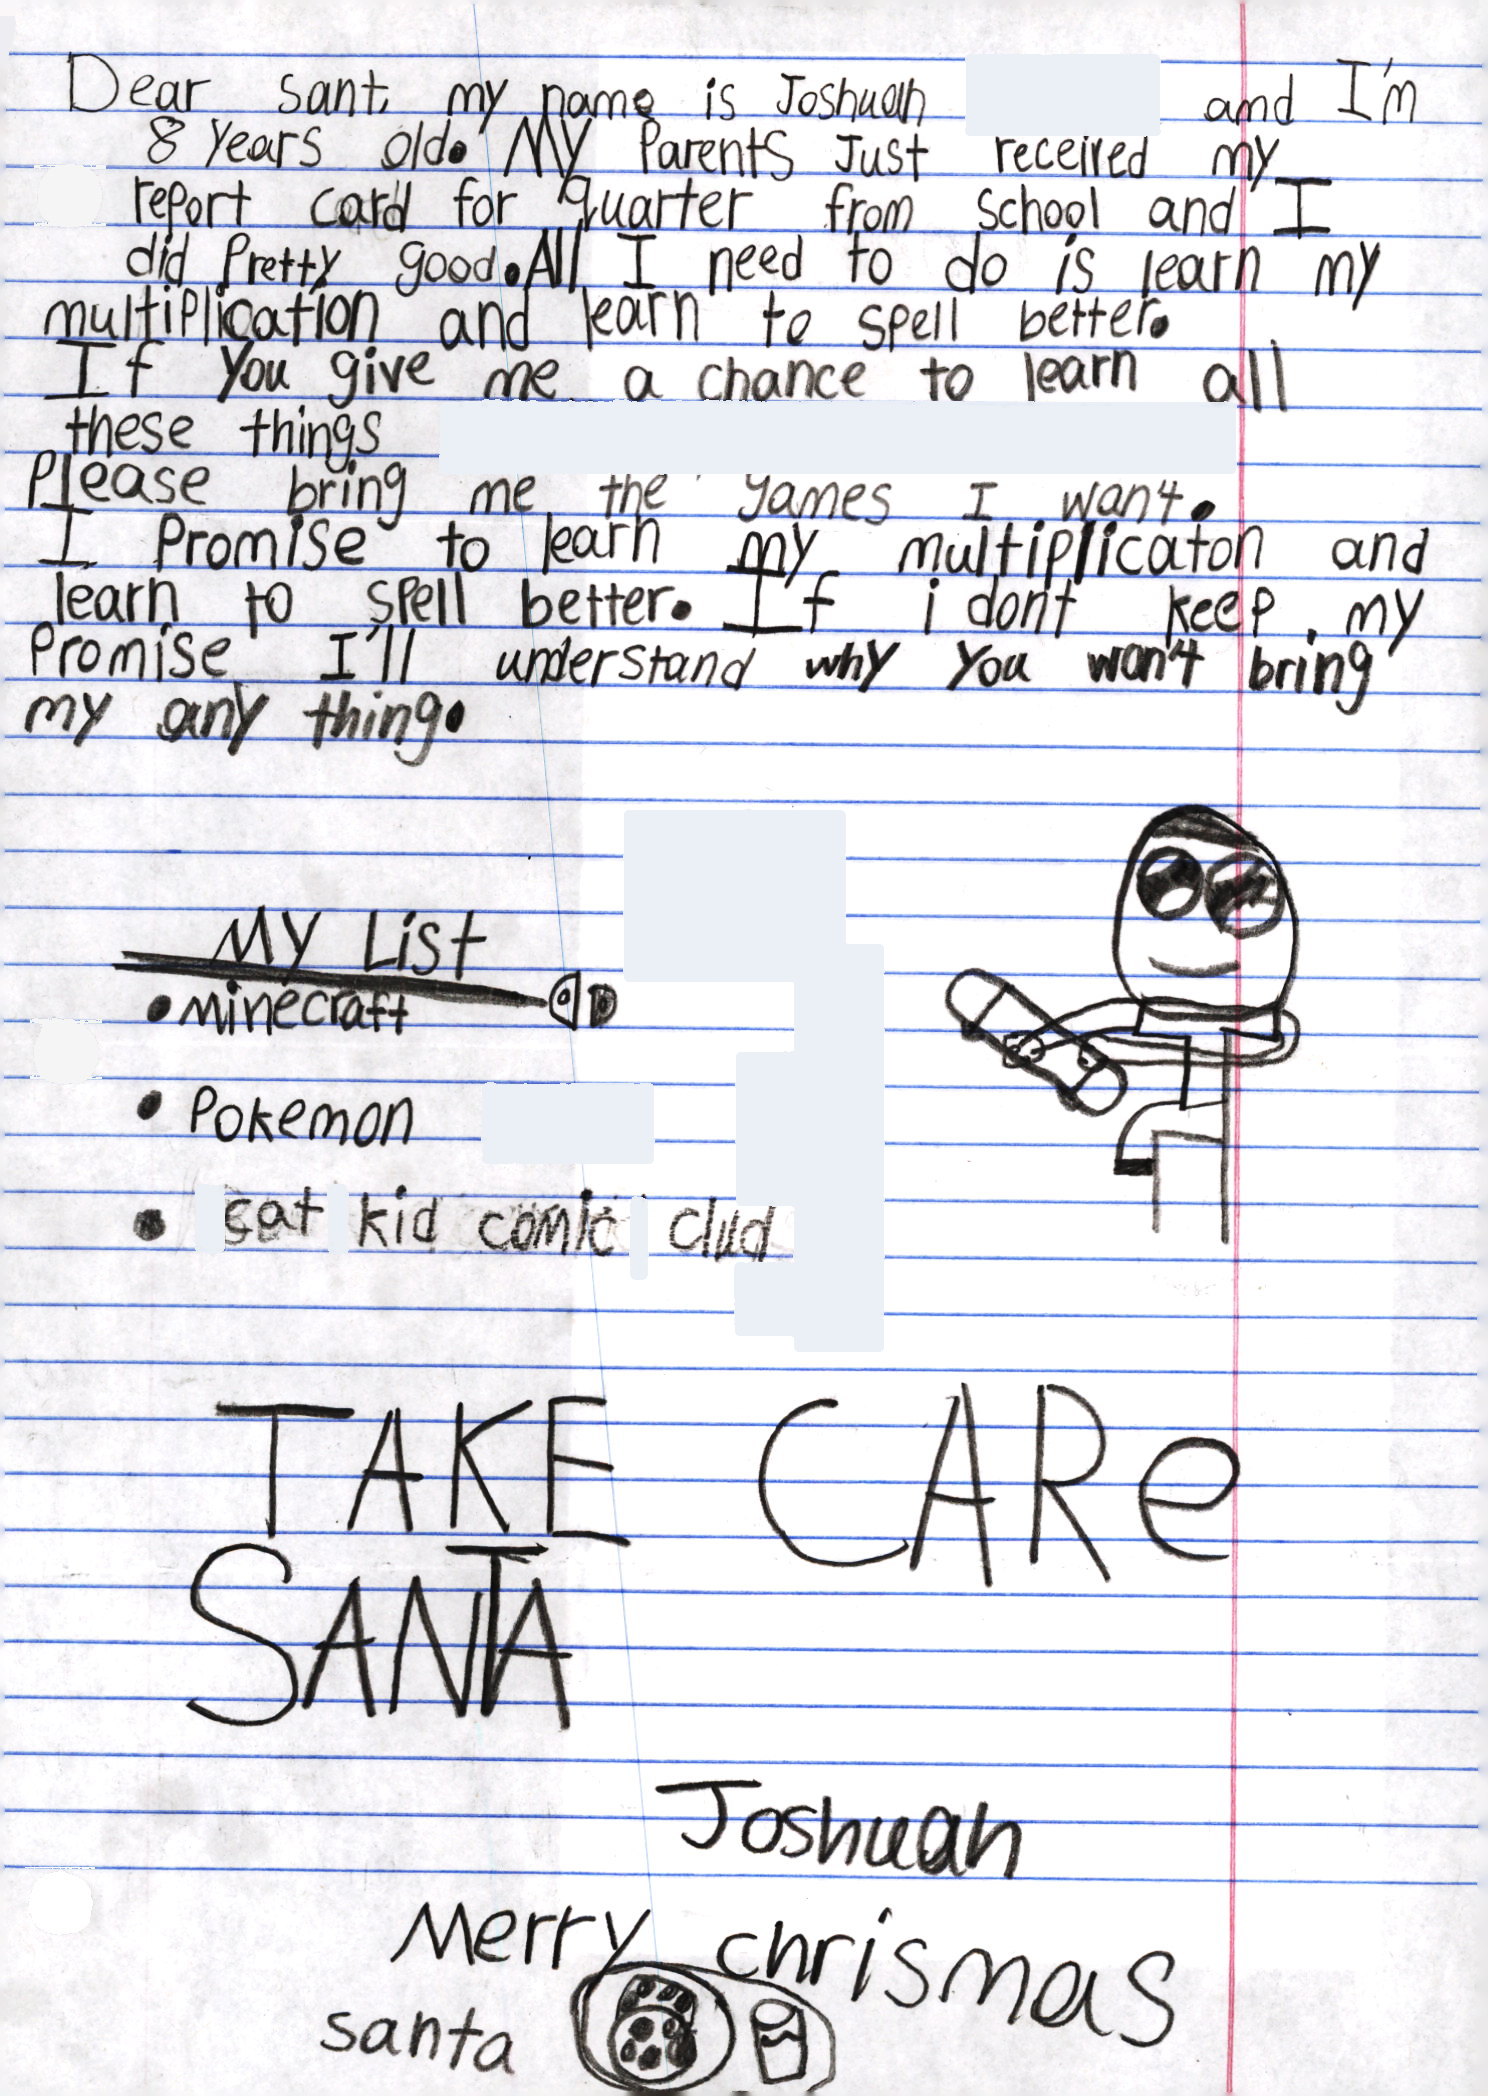 Dear Sant, my name is Joshuah and I'm
8 years old. My Parents Just received my
report card for quarter from school and I
did Pretty good. All I need to do is learn my
multiplication and learn to spell better.
If you give me a chance to learn all
these things
Please bring me the games I want.
I Promise to learn my multiplicaton and
learn to spell better. If i dont keep my
Promise I'll understand why you won't bring
my any thing.
My List
• minecraft
• Pokemon
• cat kid comic clud
TAKE CARe
SANTA
Joshuah
Merry chrismas
santa